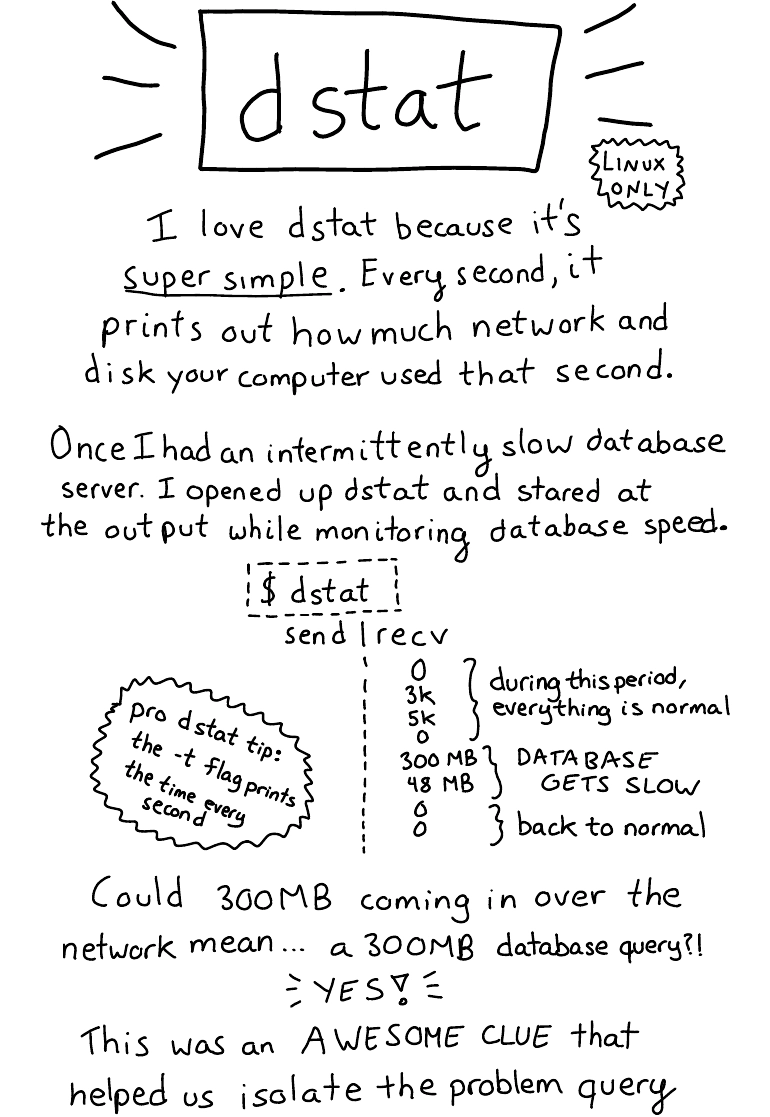 dstat
LINUX
ONLY
I love dstat because it's
super simple. Every second, it
prints out how much network and
disk your computer used that second.
Once I had an intermittently slow database
server. I opened up dstat and stared at
the output while monitoring database speed.
$ dstat
send | recv
0
3k
5k
0
during this period,
everything is normal
300 MB
48 MB
DATABASE
GETS SLOW
0
0
back to normal
pro dstat tip:
the -t flag prints
the time every
second
Could 300MB coming in over the
network mean... a 300MB database query?!
YES!
This was an AWESOME CLUE that
helped us isolate the problem query